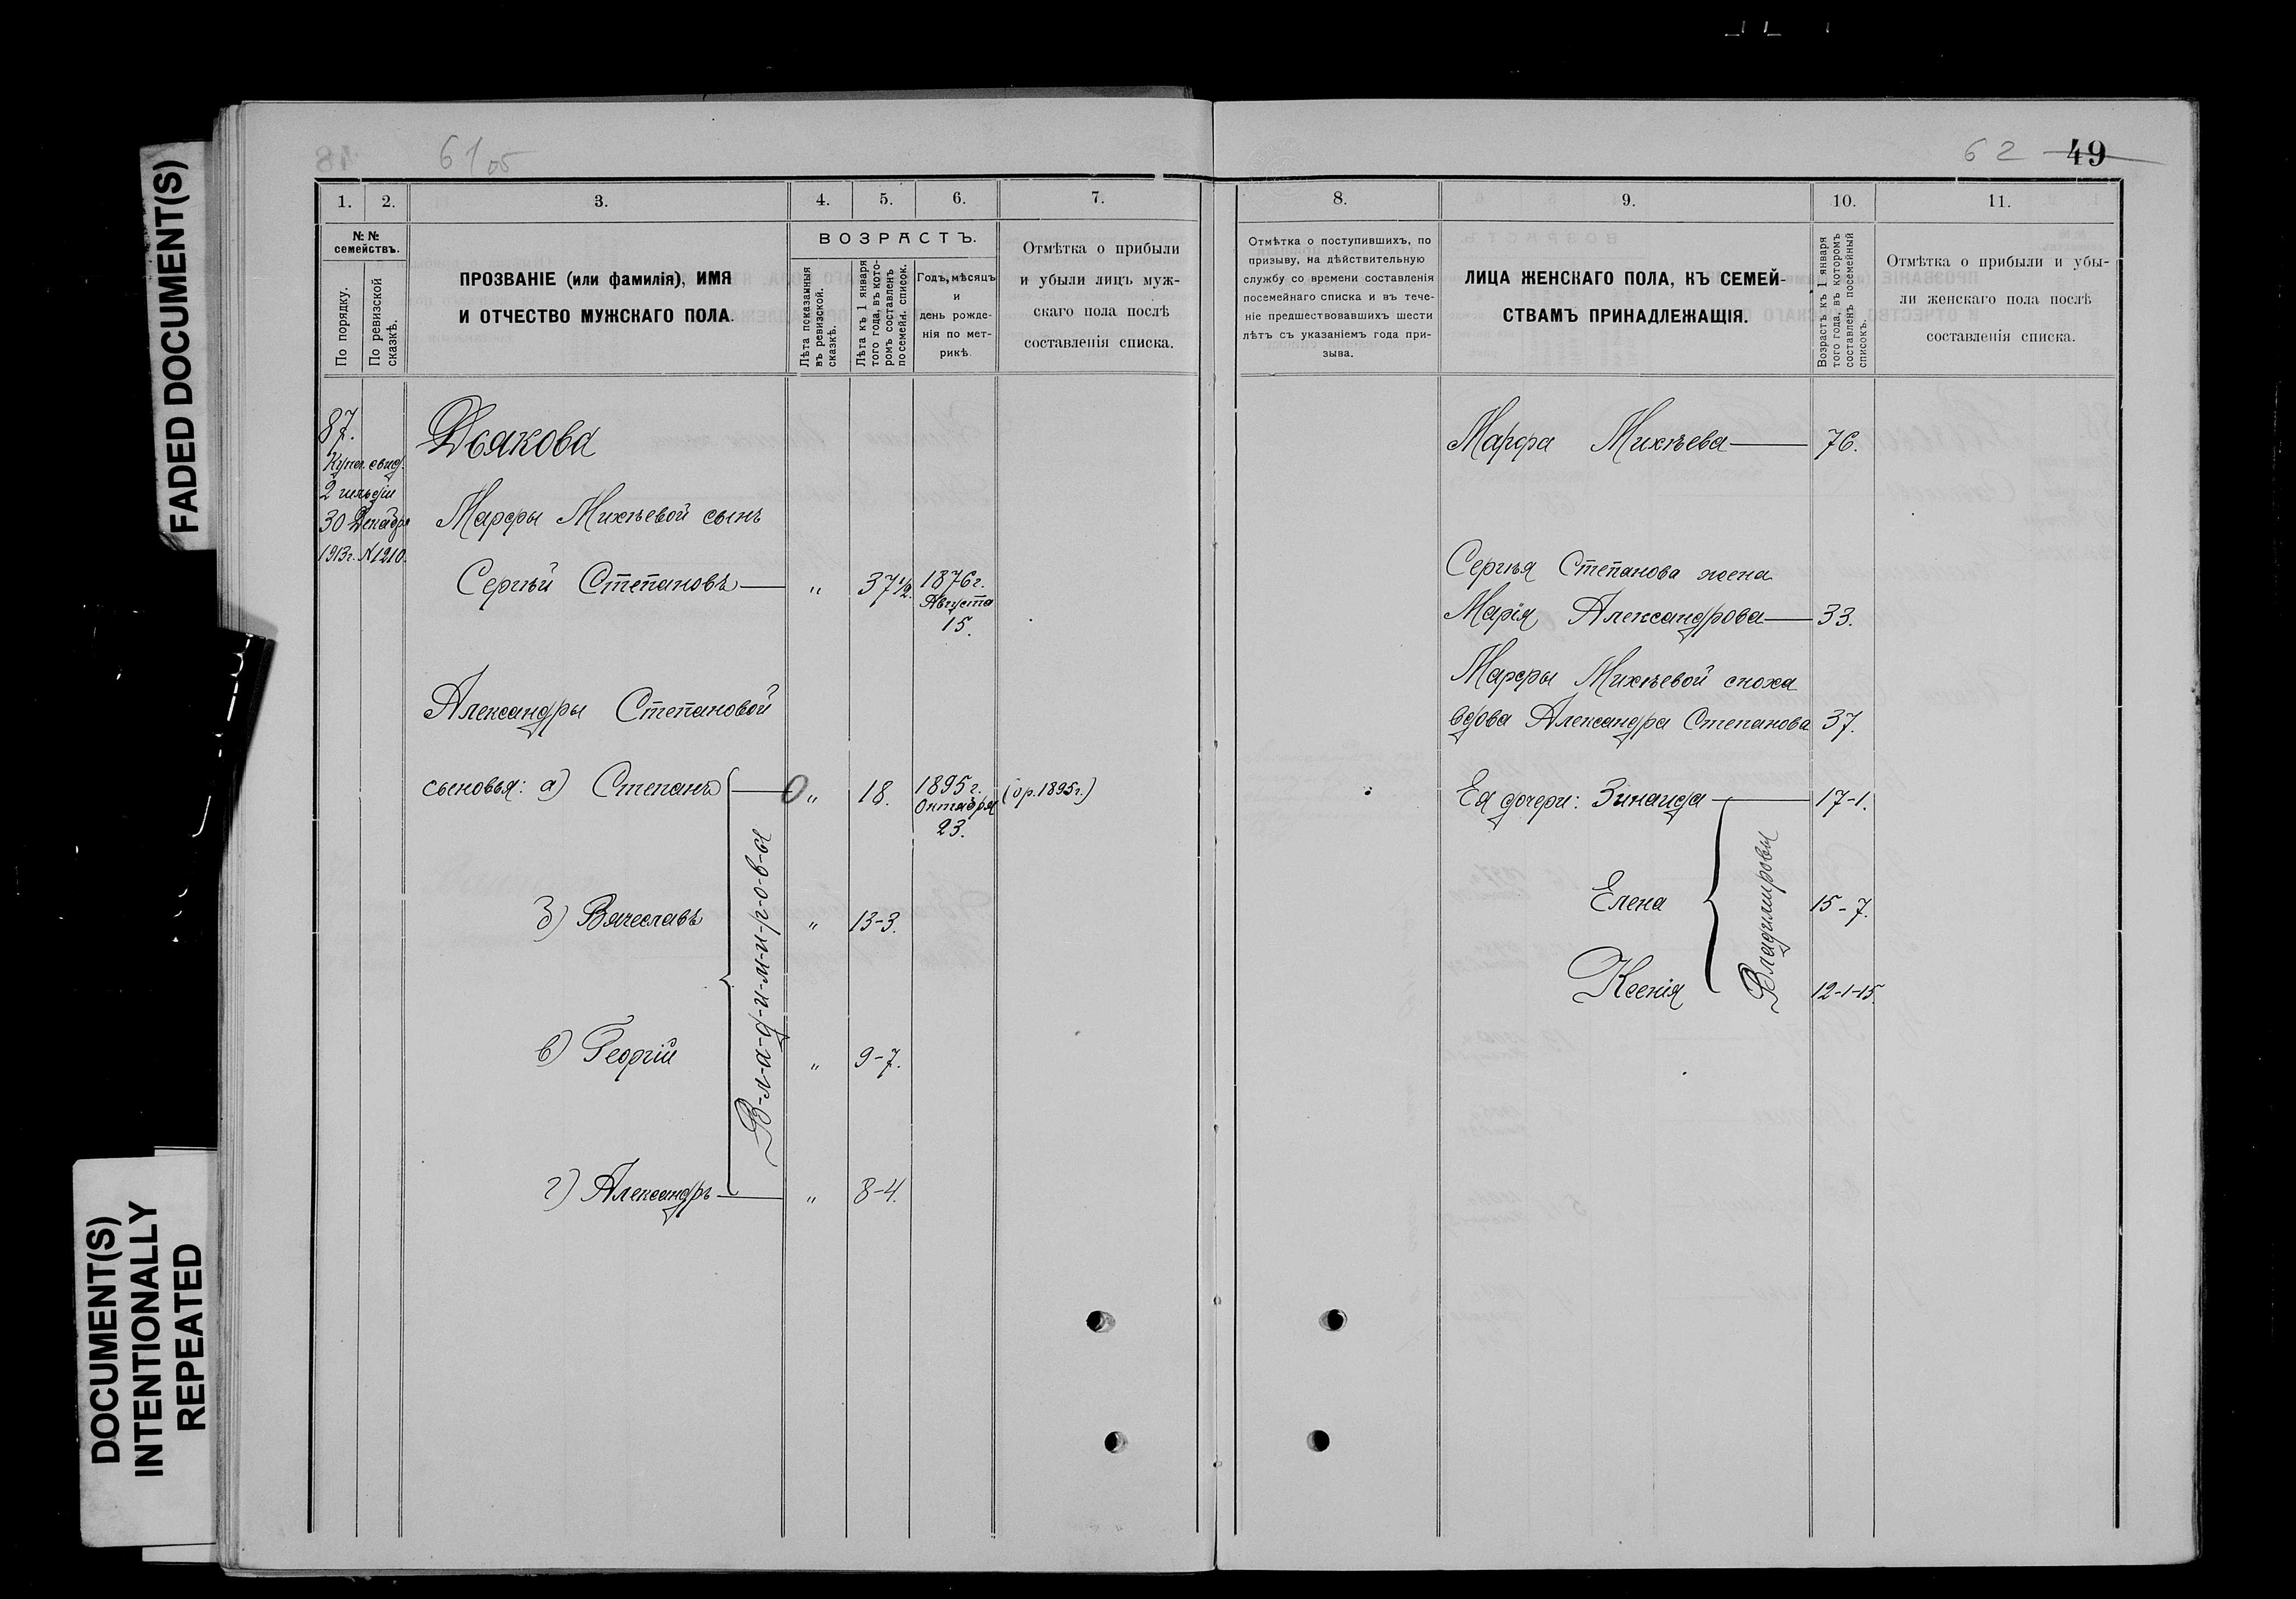 FADED DOCUMENT(S)
DOCUMENT(S)
INTENTIONALLY
REPEATED
61
1.
2.
3.
4.
5.
6.
7.
№ №
семействъ.
По порядку.
По ревизской
сказкѣ.
ПРОЗВАНІЕ (или фамилія), ИМЯ
И ОТЧЕСТВО МУЖСКАГО ПОЛА.
ВОЗРАСТЪ.
Лѣта показанныя
въ ревизской.
сказкѣ.
Лѣта къ 1 января
того года, въ кото-
ромъ составленъ
посемейн. список.
Годъ, мѣсяцъ
и
день рожде-
нія по мет-
рикѣ.
Отмѣтка о прибыли
и убыли лицъ муж-
скаго пола послѣ
составленія списка.
87.
Купеч. свид.
2 гильдіи
30 Декабря
1913г. №1210.
Дьякова
Марѳы Михѣевой сынъ
Сергѣй Степановъ " 37½ 1876г.
Августа
15.
Александры Степановой
сыновья: а) Степанъ " 18. 1895г. (ор. 1895г.)
Октября
23.
В-л-а-д-и-м-и-р-о-в-ы
б) Вячеславъ " 13-3.
в) Георгій " 9-7.
г) Александръ " 8-4.
62 49
8.
9.
10.
11.
Отмѣтка о поступившихъ, по
призыву, на дѣйствительную
службу со времени составленія
посемейнаго списка и въ тече-
ніе предшествовавшихъ шести
лѣтъ съ указаніемъ года при-
зыва.
ЛИЦА ЖЕНСКАГО ПОЛА, КЪ СЕМЕЙ-
СТВАМЪ ПРИНАДЛЕЖАЩІЯ.
Возрастъ къ 1 января
того года, въ которомъ
составленъ посемейный
списокъ.
Отмѣтка о прибыли и убы-
ли женскаго пола послѣ
составленія списка.
Марѳа Михѣева 76.
Сергѣя Степанова жена
Марія Александрова 33.
Марѳы Михѣевой сноха
вдова Александра Степанова 37.
Ея дочери: Зинаида 17-1.
Елена 15-7.
Владимировы
Ксенія 12-1-15.